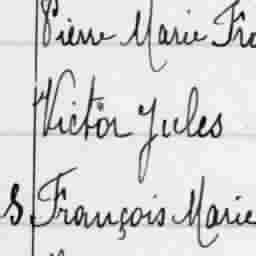 Pierre Marie Fra
Victor Jules
S François Marie